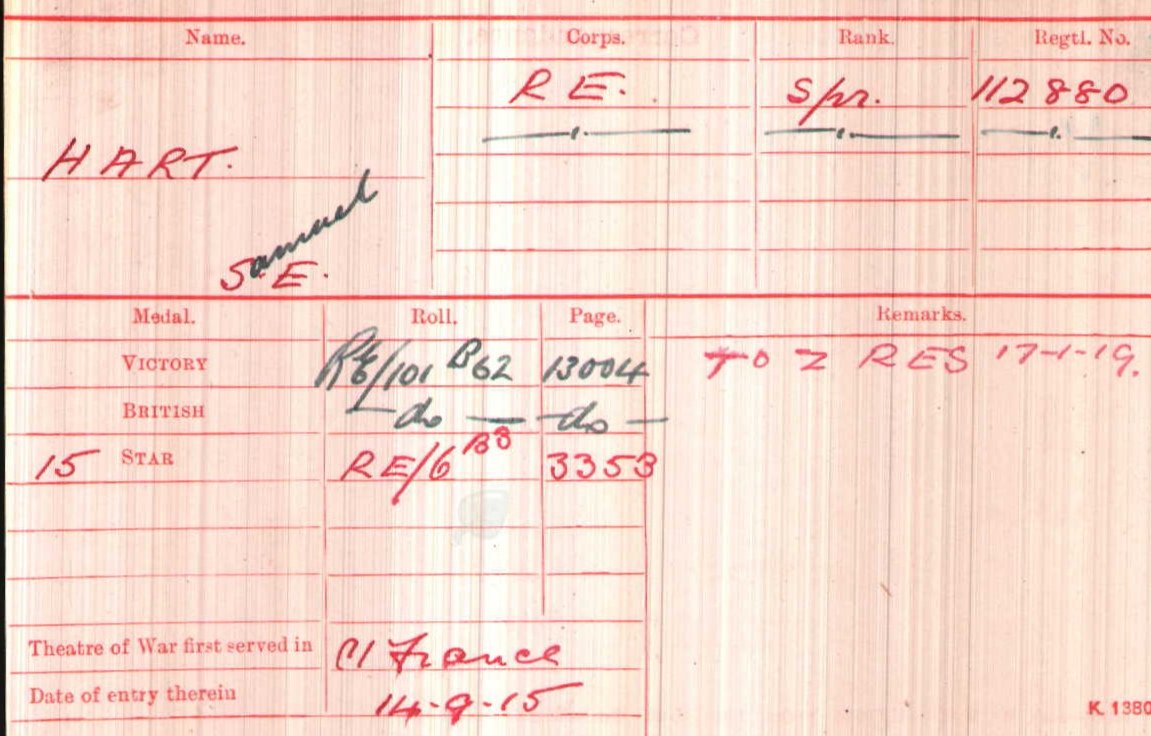 Name. Corps. Rank. Regtl. No.
R E. Spr. 112880
HART.
Samuel
S. E.
Medal. Roll. Page. Remarks.
VICTORY RE/101 B62 13004 TO Z RES 17-1-19.
BRITISH — do — — do —
15 STAR RE/6 B8 3353
Theatre of War first served in (1 France
Date of entry therein 14-9-15
K. 1380